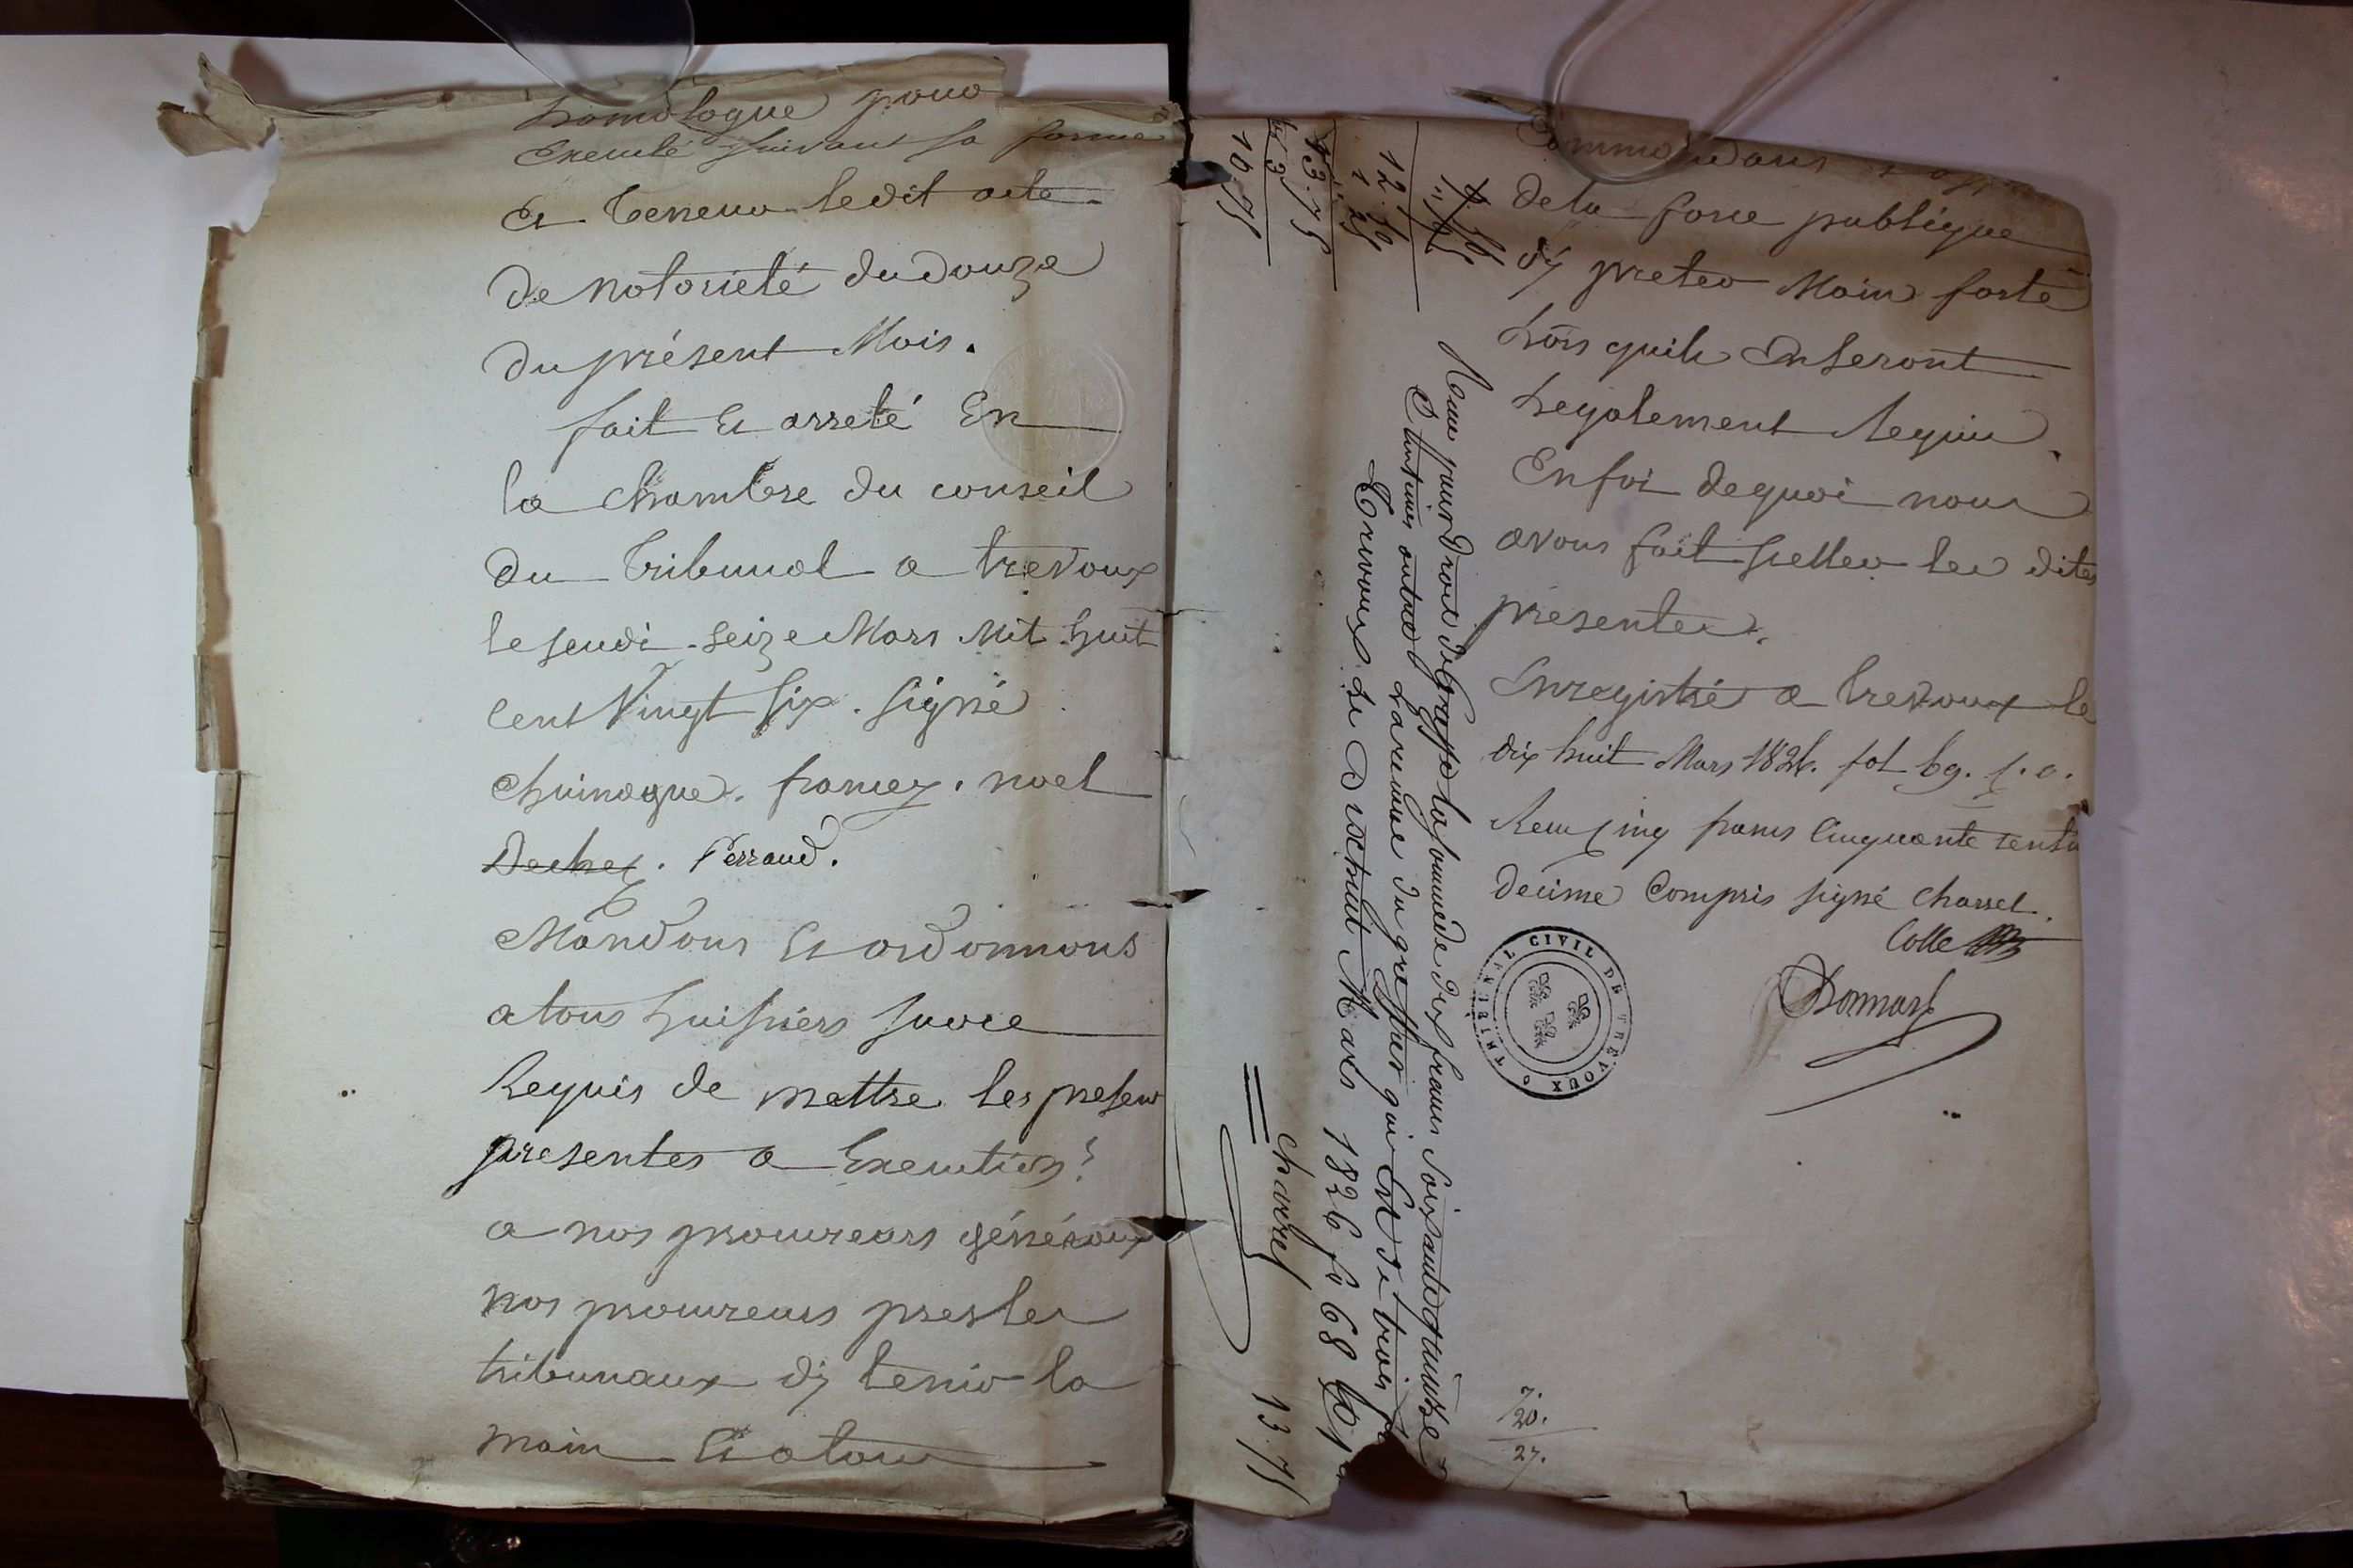 homologue pour
Executé suivant sa forme
Et Teneur ledit acte
de notorieté du douze
du présent Mois.
fait Et arreté En
la Chambre du conseil
du Tribunal a trevoux
le jeudi seize Mars Mil huit
cent Vingt Six. Signé
Chuinague. framez. noel
Dechet. Perraud.
Mandons Et ordonnons
a tous huissiers sur ce
Requis de mettre les presen
presentes a Execution
a nos procureurs généraux
nos procureurs pres les
tribunaux d'y tenir la
main Et a tous
Commandans
de la force publique
d'y preter Main forte
Lors quils En Seront
Legalement Requis.
En foi de quoi nous
avons fait sceller les dites
présentes.
Enregistré a trevoux le
dix huit Mars 1826. fol 69. c. o.
Recu cinq francs Cinquante cents
decime Compris signé Chavrel.
Colle
TRIBUNAL CIVIL DE TREVOUX
7.
20.
27.
Recu pour droit de Greffe la somme de dix francs Soixante quinze
Centimes outre la remise du greffier qui Est de trois
Trevoux le Dixhuit Mars 1826 fo 68
Chavrel 13.75
12.50
1.25
13.75
3
10.75